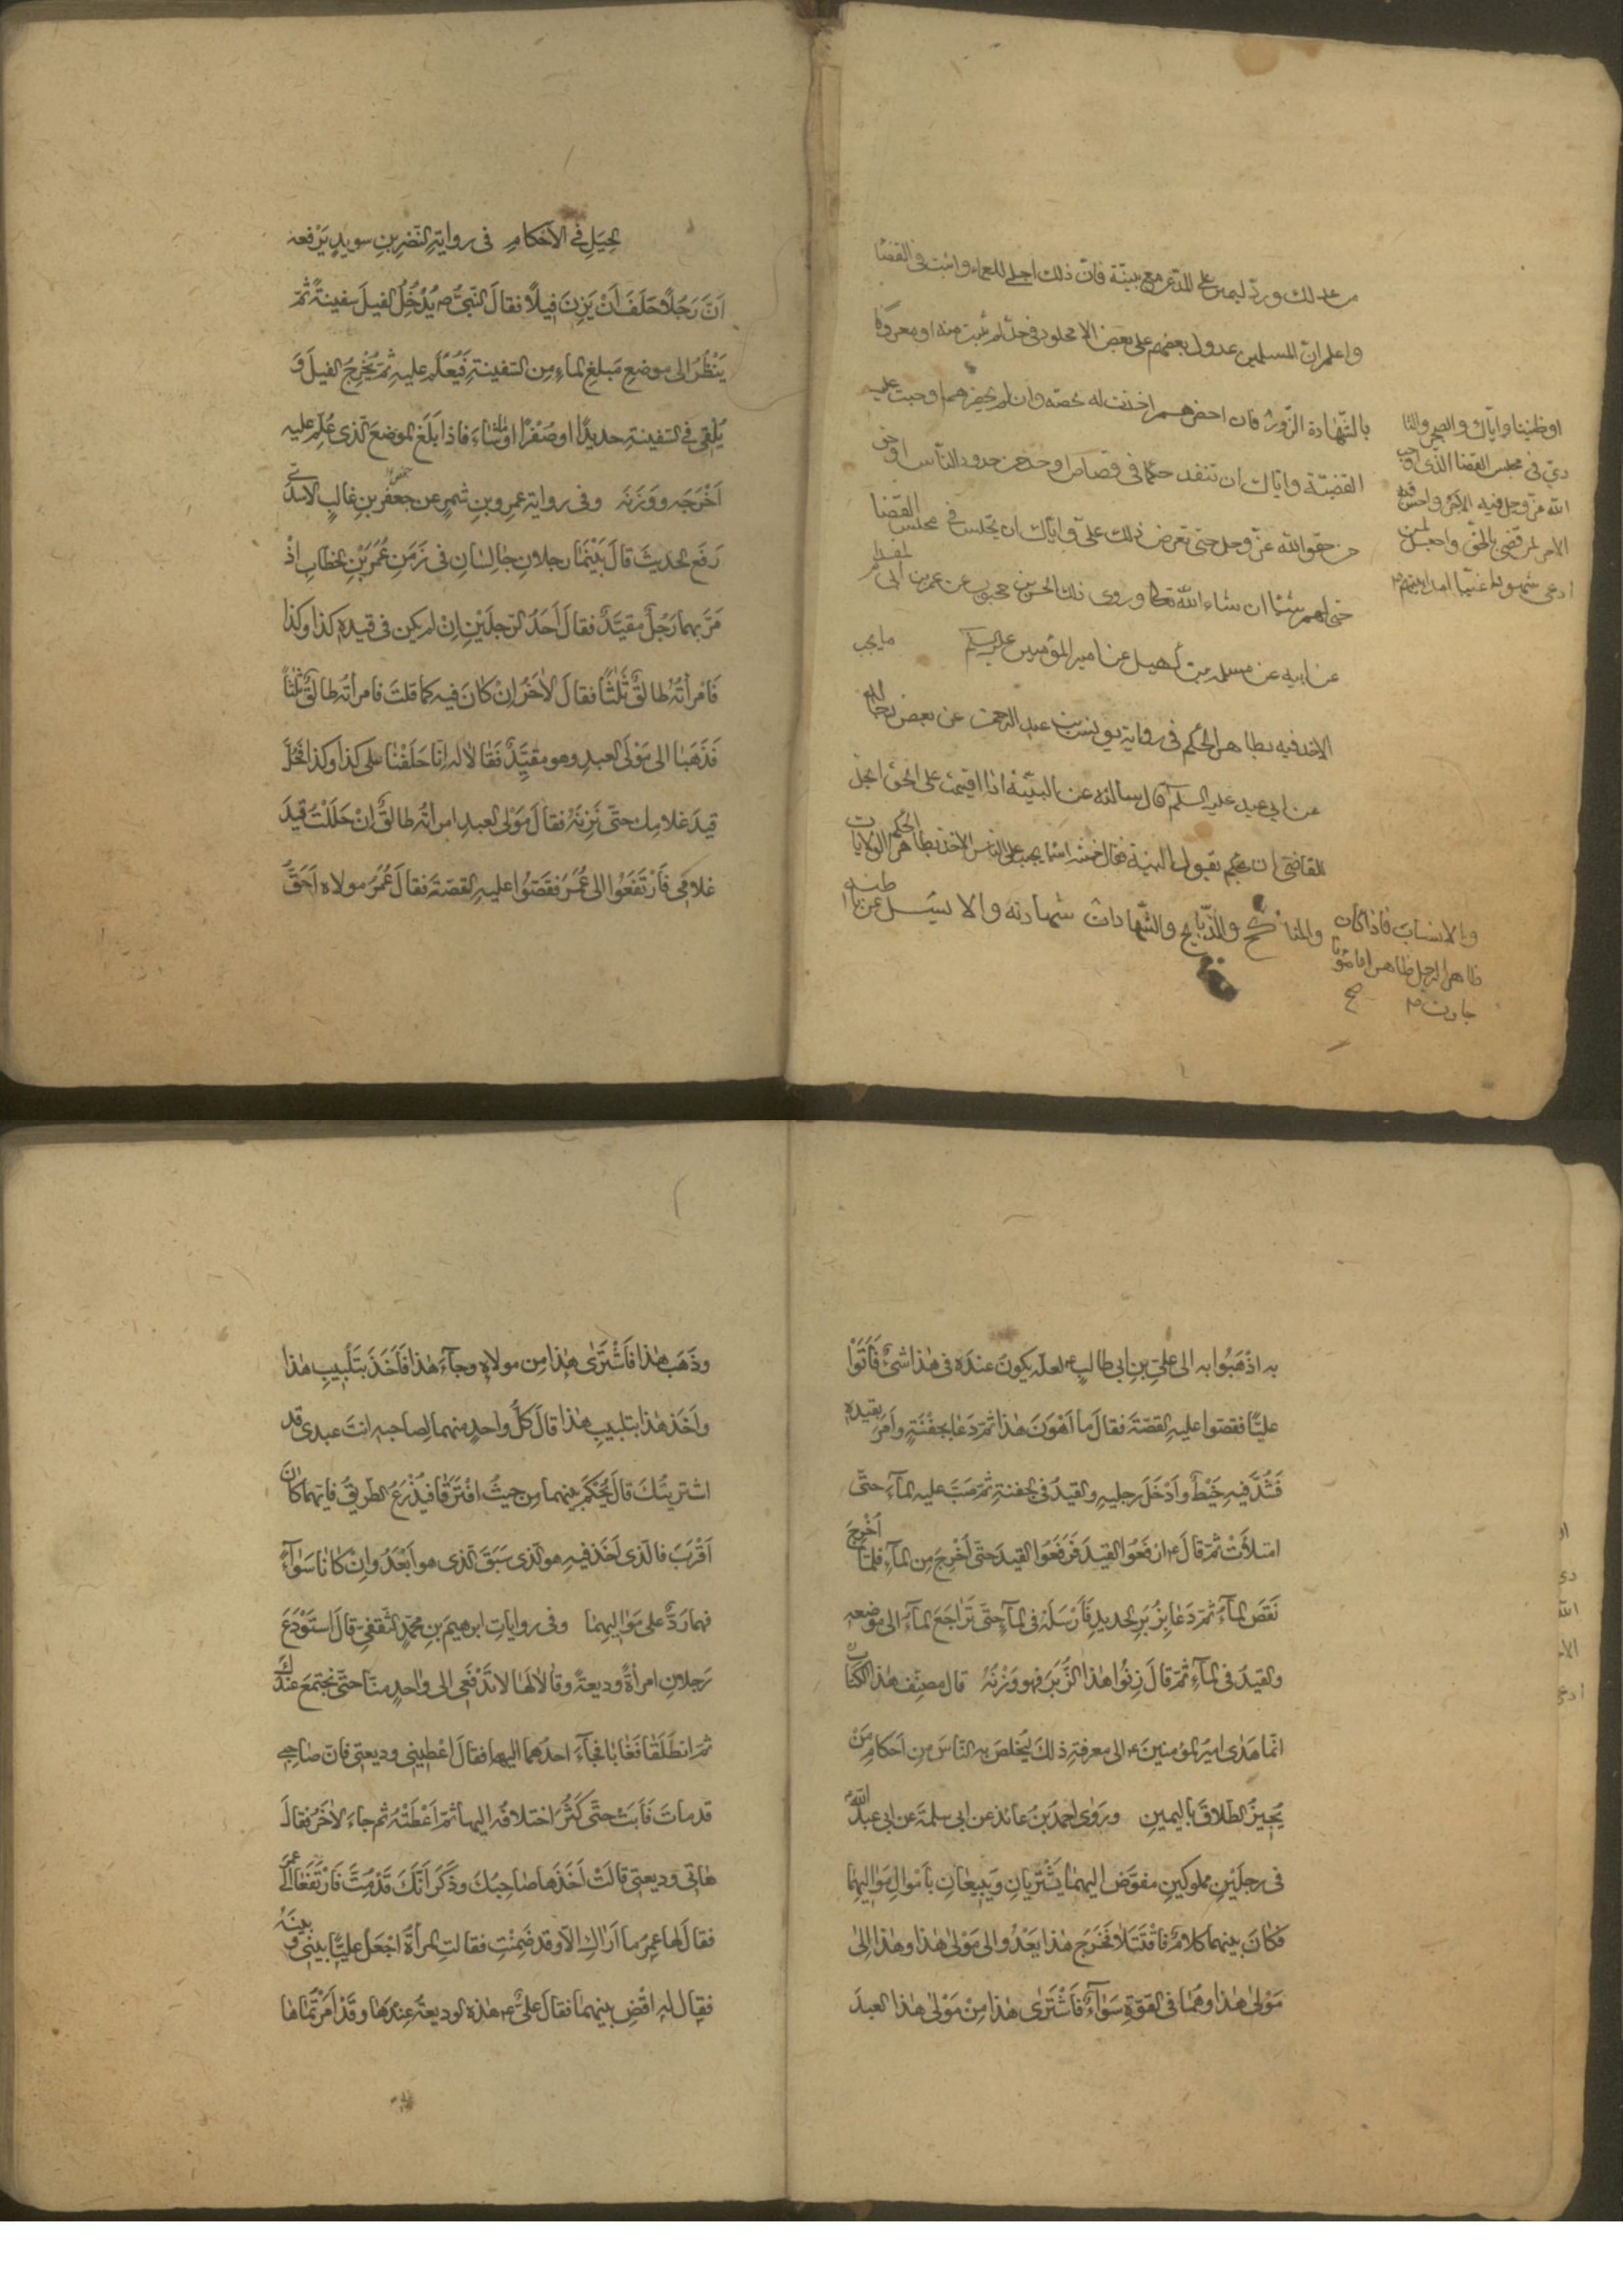 من عدلك وردّ اليمين على المدّعى مع بينة فان ذلك اجلى للعماء واثبت فى القضا
واعلم انّ المسلمين عدول بعضهم على بعض الا محلود فى حدّ لم يتب منه او معروفا
بالشّهادة الزّور فان احضرهم اخذت له بحقه وان لم يحضرهم اوجبت عليه
القضيّة وايّاك ان تنفد حكما فى قصاص او حد من حدود النّاس او حق
من حقوق الله عزّ وجل حتى تعرض ذلك علىّ وايّاك ان تجلس فى مجلس القضا
حتى تطعم شيئا ان شاء الله تعالى وروى ذلك الحسن بن محبوب عن عمرو بن ابى المقدام
عن ابيه عن سلمه بن كهيل عن امير المؤمنين عليه السلام ما يجب
الاخذ فيه بظاهر الحكم فى رواية يونس بن عبد الرحمن عن بعض رجاله
عن ابى عبد عليه السلم قال سالته عن البيّنة اذا اقيمت على الحق ايحل
للقاضى ان يحكم بقول البينة فقال خمسة اشيا يجب على الناس الاخذ بظاهر الحكم الولايات
والمناكح والذّبايح والشّهادات شهادته والا يسئل عن باطنه
او ظنينا وايّاك والضجر والتا
ذى فى مجلس القضا الذى اوجب
الله عزّ وجل فيه الاجر واحسن فيه
الاجر لمن قضى بالحق واجعل لمن
ادعى شهودا غيبّا امدا بينهم
والانساب فاذا كان
ظاهر الرجل ظاهرا مامونا
جازت صح
الحِيَلِ فى الاَحْكامِ فى روايةِ النّضرِ بنِ سويدٍ يَرْفعه
اَنَّ رَجُلاً حَلَفَ اَنْ يَزِنَ فِيلاً فقالَ النّبىُّ ص يُدْخِلُ الفيلَ سفينةً ثمّ
يَنْظُرُ الى موضعِ مَبلغِ الماءِ مِن السّفينةِ فَيُعلّم عليهِ ثمّ يُخْرِجُ الفيلَ وَ
يُلْقِى فى السّفينةِ حديدًا او صُفْرًا او ما شاءَ فاذا بَلَغَ الموضعَ الذى عُلّمَ عليه
اَخْرَجَه ووَزَنَه وفى روايةِ عمرِو بنِ شمرٍ عن جعفر بنِ غالبٍ الاسدىّ
رَفَع الحديثَ قالَ بَيْنَمَا رجلانِ جالسانِ فى زَمَنِ عُمَرَ بْنِ الخطابِ اذْ
مَرَّ بهما رَجُلٌ مقيّدٌ فقالَ اَحَدُ الرّجلَيْنِ اِنْ لم يكن فى قيدِهِ كذا وكذا
فَامْراَتُه طالقٌ ثَلٰثًا فقالَ الاٰخَرُ اِنْ كانَ فيه كما قلتَ فامرأتُه طالقٌ ثلثًا
فَذَهَبَا الى مَوْلَى العبدِ وهو مقيّدٌ فَقالا له اِنّا حَلَفْنا على كذا وكذا فحُلَّ
قيدَ غلامِك حتّى نَزِنَهُ فقالَ مَوْلى العبدِ امراتُه طالقٌ اِنْ حَلَلْتُ قَيدَ
غلامى فَارْتَفَعُوا الى عُمَرَ فقَصّوُا عليهِ القصّةَ فقالَ عُمَرُ مولاه اَحَقُّ
به اذْهَبُوا به الى علىّ بنِ ابى طالبٍ ع لعلّه يكونُ عندَه فى هٰذا شىءٌ فَاَتَوْا
عليًّا فقصّوا عليهِ القصّةَ فقالَ ما اَهْوَنَ هٰذا ثمّ دَعَا بجَفْنَةٍ واَمَرَ بقيدِهِ
فَشُدَّ فيهِ خَيْطٌ واَدْخَلَ رجليهِ والقيدَ فى الجفنةِ ثمّ صَبَّ عليهِ الماءَ حتّى
امتلأَتْ ثمّ قالَ ع ارفَعُوا القيدَ فَرَفَعُوا القيدَ حتّى اُخْرِجَ مِن الماءِ فلمّا اُخْرِجَ
نَقَصَ الماءُ ثمّ دَعَا بزُبَرِ الحديدِ فَاَرْسَلَهُ فى الماءِ حتّى تَرَاجَعَ الماءُ الى موضعِه
والقيدُ فى الماءِ ثمّ قالَ زِنُوا هذا الزُّبَرَ فهو وَزْنُهُ قال مصنّف هذا الكتاب
انّما هَدٰى اميرُ المؤمنينَ ع الى معرفةِ ذلكَ ليُخلصَ به النّاسَ مِن احكامِ مَنْ
يُجيزُ الطلاقَ باليمينِ ورَوٰى احمدُ بْنُ عائذٍ عن ابى سلمةَ عن ابى عبد الله ع
فى رجلَيْنِ مملوكَينِ مفوّضٍ اليهما يَشْتَرِيانِ ويَبِيعانِ باَمْوالِ مَوَاليهِما
فكانَ بينهما كلامٌ فاقْتَتَلا فخَرَجَ هذا يَعْدُو الى مَوْلٰى هٰذا وهٰذا الى
مَوْلٰى هٰذا وهُمَا فى القوّةِ سَوَاءٌ فَاشْتَرٰى هٰذا مِنْ مَوْلٰى هٰذا العبدَ
وذَهَبَ هٰذا فَاشْتَرٰى هٰذا مِن مولاهُ وجاءَ هٰذا فَاَخَذَ بتَلْبيبِ هٰذا
واَخَذَ هٰذا بتلبيبِ هٰذا قالَ كلُّ واحدٍ منهما لِصاحبهِ انتَ عبدى قد
اشتريتُكَ قالَ يُحْكَمُ بينهما مِن حيثُ افْتَرَقا فيُذْرَعُ الطّريقُ فايّهما كانَ
اَقْرَبَ فالّذى اَخَذَ فيهِ هو الّذى سَبَقَ الّذى هو اَبْعَدُ واِنْ كانا سَوٰاءً
فهما رَدٌّ على مَوَاليهِما وفى رواياتِ ابرهيمَ بنِ محمّدٍ الثّقفىِّ قالَ استَوْدَعَ
رَجلانِ امرأةً وديعةً وقالا لَها لا تَدْفَعى الى واحدٍ منّا حتّى نجتَمعَ عندكِ
ثمّ انطَلَقا فغابا فجاءَ احدُهما اليها فقالَ اعْطِينى وديعتى فانّ صاحبى
قدماتَ فَاَبَتْ حتّى كَثُرَ اختلافُه اليها ثمّ اَعْطَتْهُ ثم جاءَ الاٰخَرُ فقالَ
هاتى وديعتى قالَتْ اَخَذَها صاحِبُكَ وذَكَرَ اَنّكَ قَدْمُتَّ فَارْتَفَعَا الى عمَرَ
فقالَ لَها عمرُ ما اَرَاكِ الاّ وقد ضَمِنْتِ فقالتِ المرأةُ اجْعَلْ عليًّا بينى وبينَهُ
فقال له اقْضِ بينهما فقالَ علىٌّ ع هذه الوديعةُ عِنْدَها وقَدْ اَمَرْتُماها